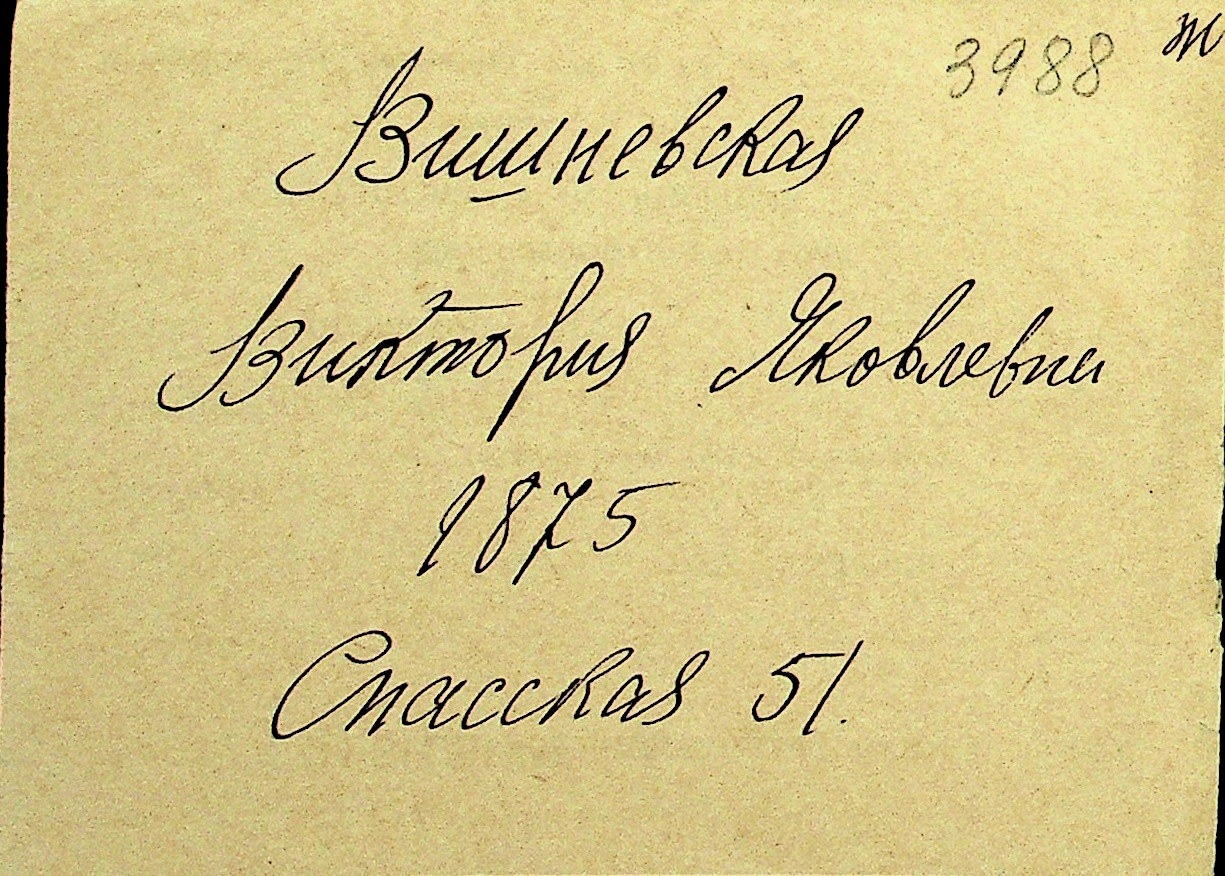 3988 ж
Вишневская
Виктория Яковлевна
1875
Спасская 51.